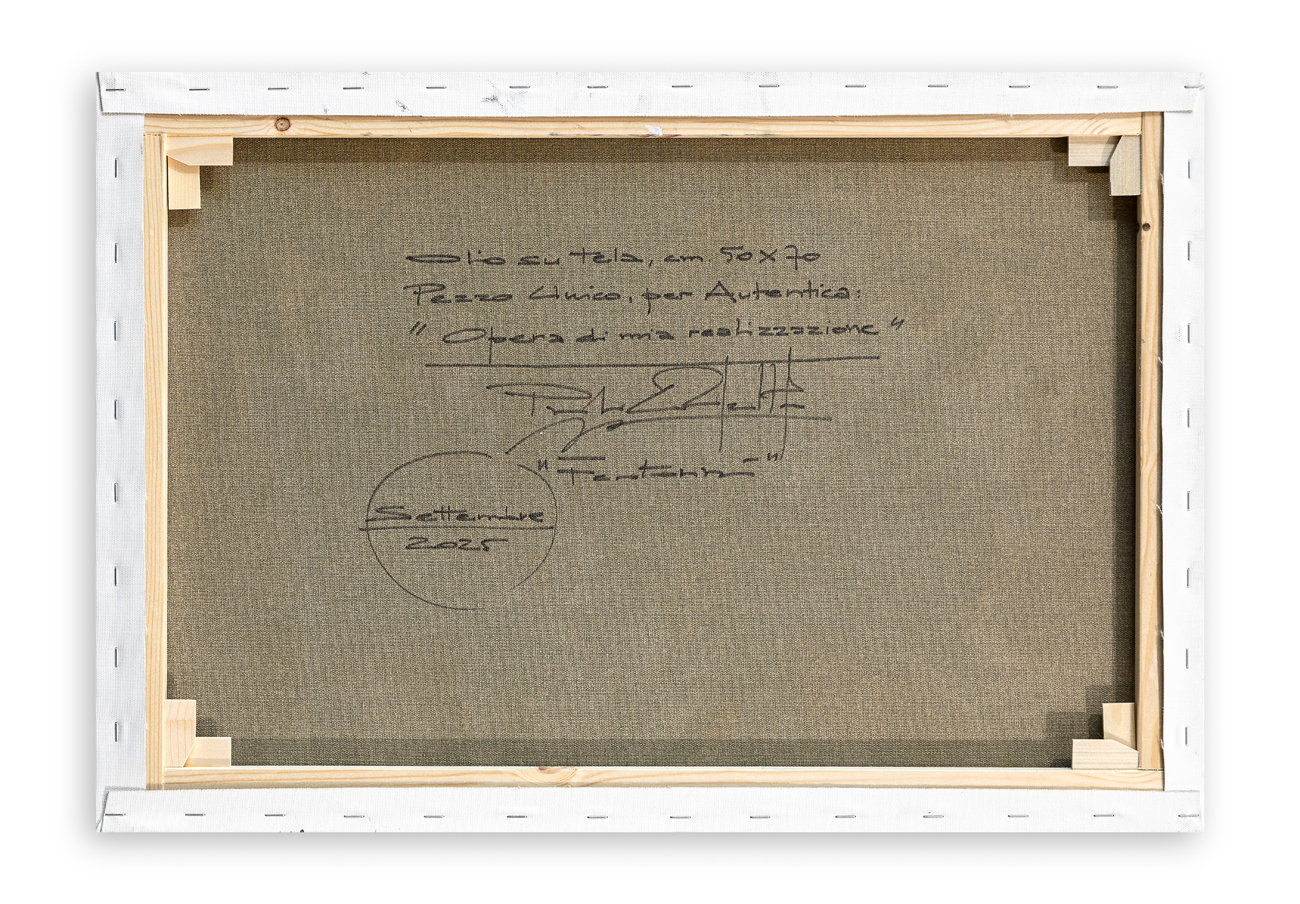 Olio su tela, cm. 50x70
Pezzo Unico, per Autentica:
" Opera di mia realizzazione "
Settembre
2025